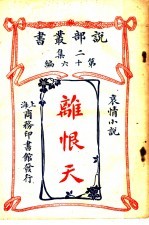 說部叢書
第二集
十六編
哀情小說
離恨天
上海商務印書館發行